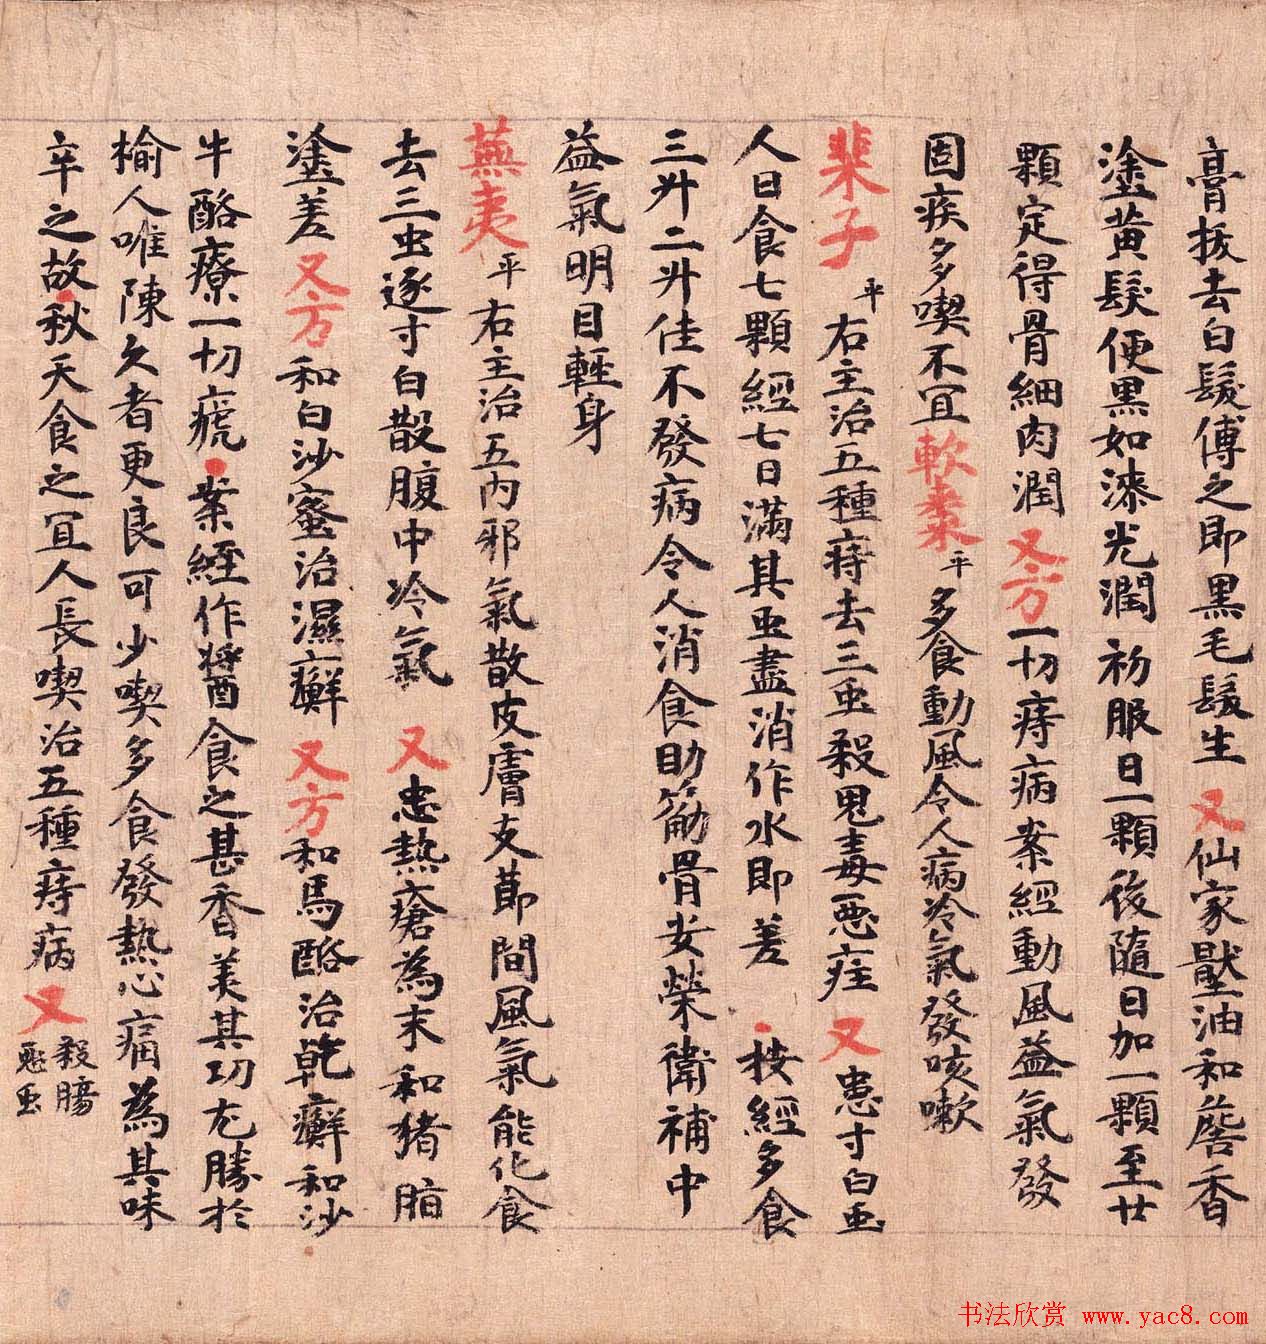 膏拔去白髮傅之即黑毛髮生 又仙家壓油和詹香
塗黃髮便黑如漆光潤 初服日一顆後隨日加一顆至廿
顆定得骨細肉潤 又方一切痔病案經動風益氣發
固疾多喫不宜軟棗平多食動風令人病冷氣發咳嗽
榧子平右主治五種痔去三虫殺鬼毒惡疰 又患寸白虫
人日食七顆經七日滿其虫盡消作水即差 按經多食
三升二升佳不發病令人消食助筋骨安榮衛補中
益氣明目輕身
蕪荑平右主治五內邪氣散皮膚支節間風氣能化食
去三虫逐寸白散腹中冷氣 又患熱瘡為末和猪脂
塗差 又方和白沙蜜治濕癬 又方和馬酪治乾癬和沙
牛酪療一切瘡 案經作醬食之甚香美其功尤勝於
榆人唯陳久者更良可少喫多食發熱心痛為其味
辛之故秋天食之宜人長喫治五種痔病又殺腸惡虫
书法欣赏 www.yac8.com